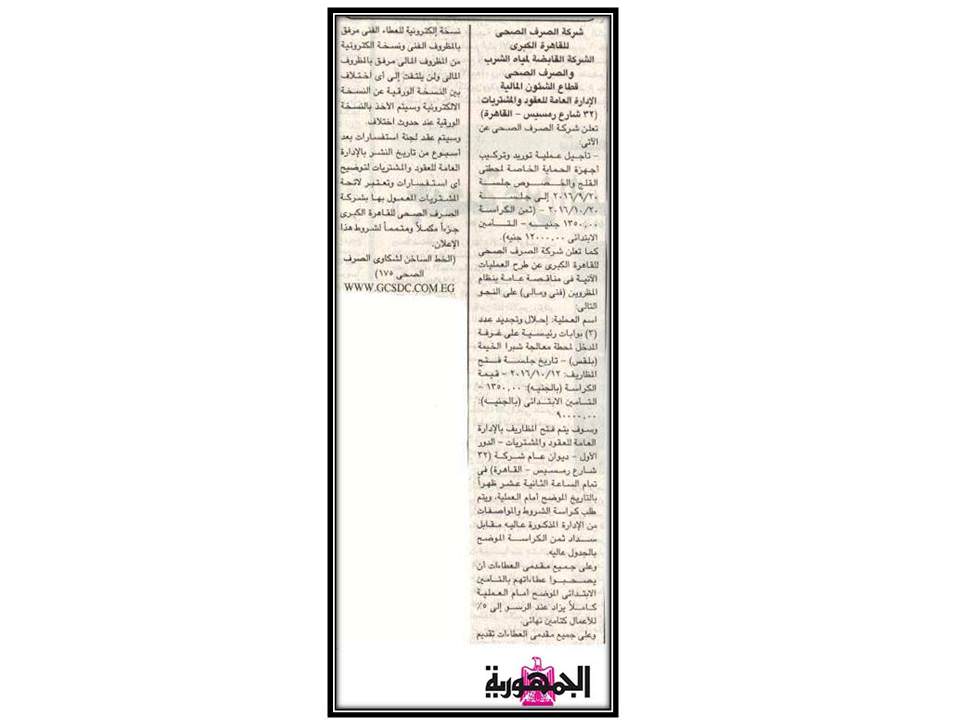 شركة الصرف الصحى
للقاهرة الكبرى
الشركة القابضة لمياه الشرب
والصرف الصحى
قطاع الشئون المالية
الإدارة العامة للعقود والمشتريات
(٣٢ شارع رمسيس - القاهرة)
تعلن شركة الصرف الصحى عن
الآتى:
- تأجيل عملية توريد وتركيب
أجهزة الحماية الخاصة لمحطتى
القلج والخصوص جلسة
٢٠١٦/٩/٢٠ إلى جلسة
٢٠١٦/١٠/٢٠ - (ثمن الكراسة
١٣٥٠,٠٠ جنيه - التأمين
الابتدائى ١٢٠٠٠,٠٠ جنيه).
كما تعلن شركة الصرف الصحى
للقاهرة الكبرى عن طرح العمليات
الآتية فى مناقصة عامة بنظام
المظروين (فنى ومالى) على النحو
التالى:
اسم العملية: إحلال وتجديد عدد
(٣) بوابات رئيسية على غرفة
المدخل لمحطة معالجة شبرا الخيمة
(بلقس) - تاريخ جلسة فتح
المظاريف: ٢٠١٦/١٠/١٢ - قيمة
الكراسة (بالجنيه): ١٣٥٠,٠٠ -
التأمين الابتدائى (بالجنيه):
٩٠٠٠٠,٠٠
وسوف يتم فتح المظاريف بالإدارة
العامة للعقود والمشتريات - الدور
الأول - ديوان عام شركة (٣٢
شارع رمسيس - القاهرة) فى
تمام الساعة الثانية عشر ظهراً
بالتاريخ الموضح أمام العملية، ويتم
طلب كراسة الشروط والمواصفات
من الإدارة المذكورة عاليه مقابل
سداد ثمن الكراسة الموضح
بالجدول عاليه.
وعلى جميع مقدمى العطاءات أن
يصحبوا عطاءاتهم بالتأمين
الابتدائى الموضح أمام العملية
كاملاً يزاد عند الرسو إلى ٥٪
للأعمال كتأمين نهائى.
وعلى جميع مقدمى العطاءات تقديم
نسخة إلكترونية للعطاء الفنى مرفق
بالمظروف الفنى ونسخة الكترونية
من المظروف المالى مرفق بالمظروف
المالى ولن يلتفت إلى أى اختلاف
بين النسخة الورقية عن النسخة
الالكترونية وسيتم الأخذ بالنسخة
الورقية عند حدوث اختلاف.
وسيتم عقد لجنة استفسارات بعد
أسبوع من تاريخ النشر بالإدارة
العامة للعقود والمشتريات لتوضيح
أى استفسارات وتعتبر لائحة
المشتريات المعمول بها بشركة
الصرف الصحى للقاهرة الكبرى
جزءاً مكملاً ومتمماً لشروط هذا
الإعلان.
(الخط الساخن لشكاوى الصرف
الصحى ١٧٥)
WWW.GCSDC.COM.EG
الجمهورية